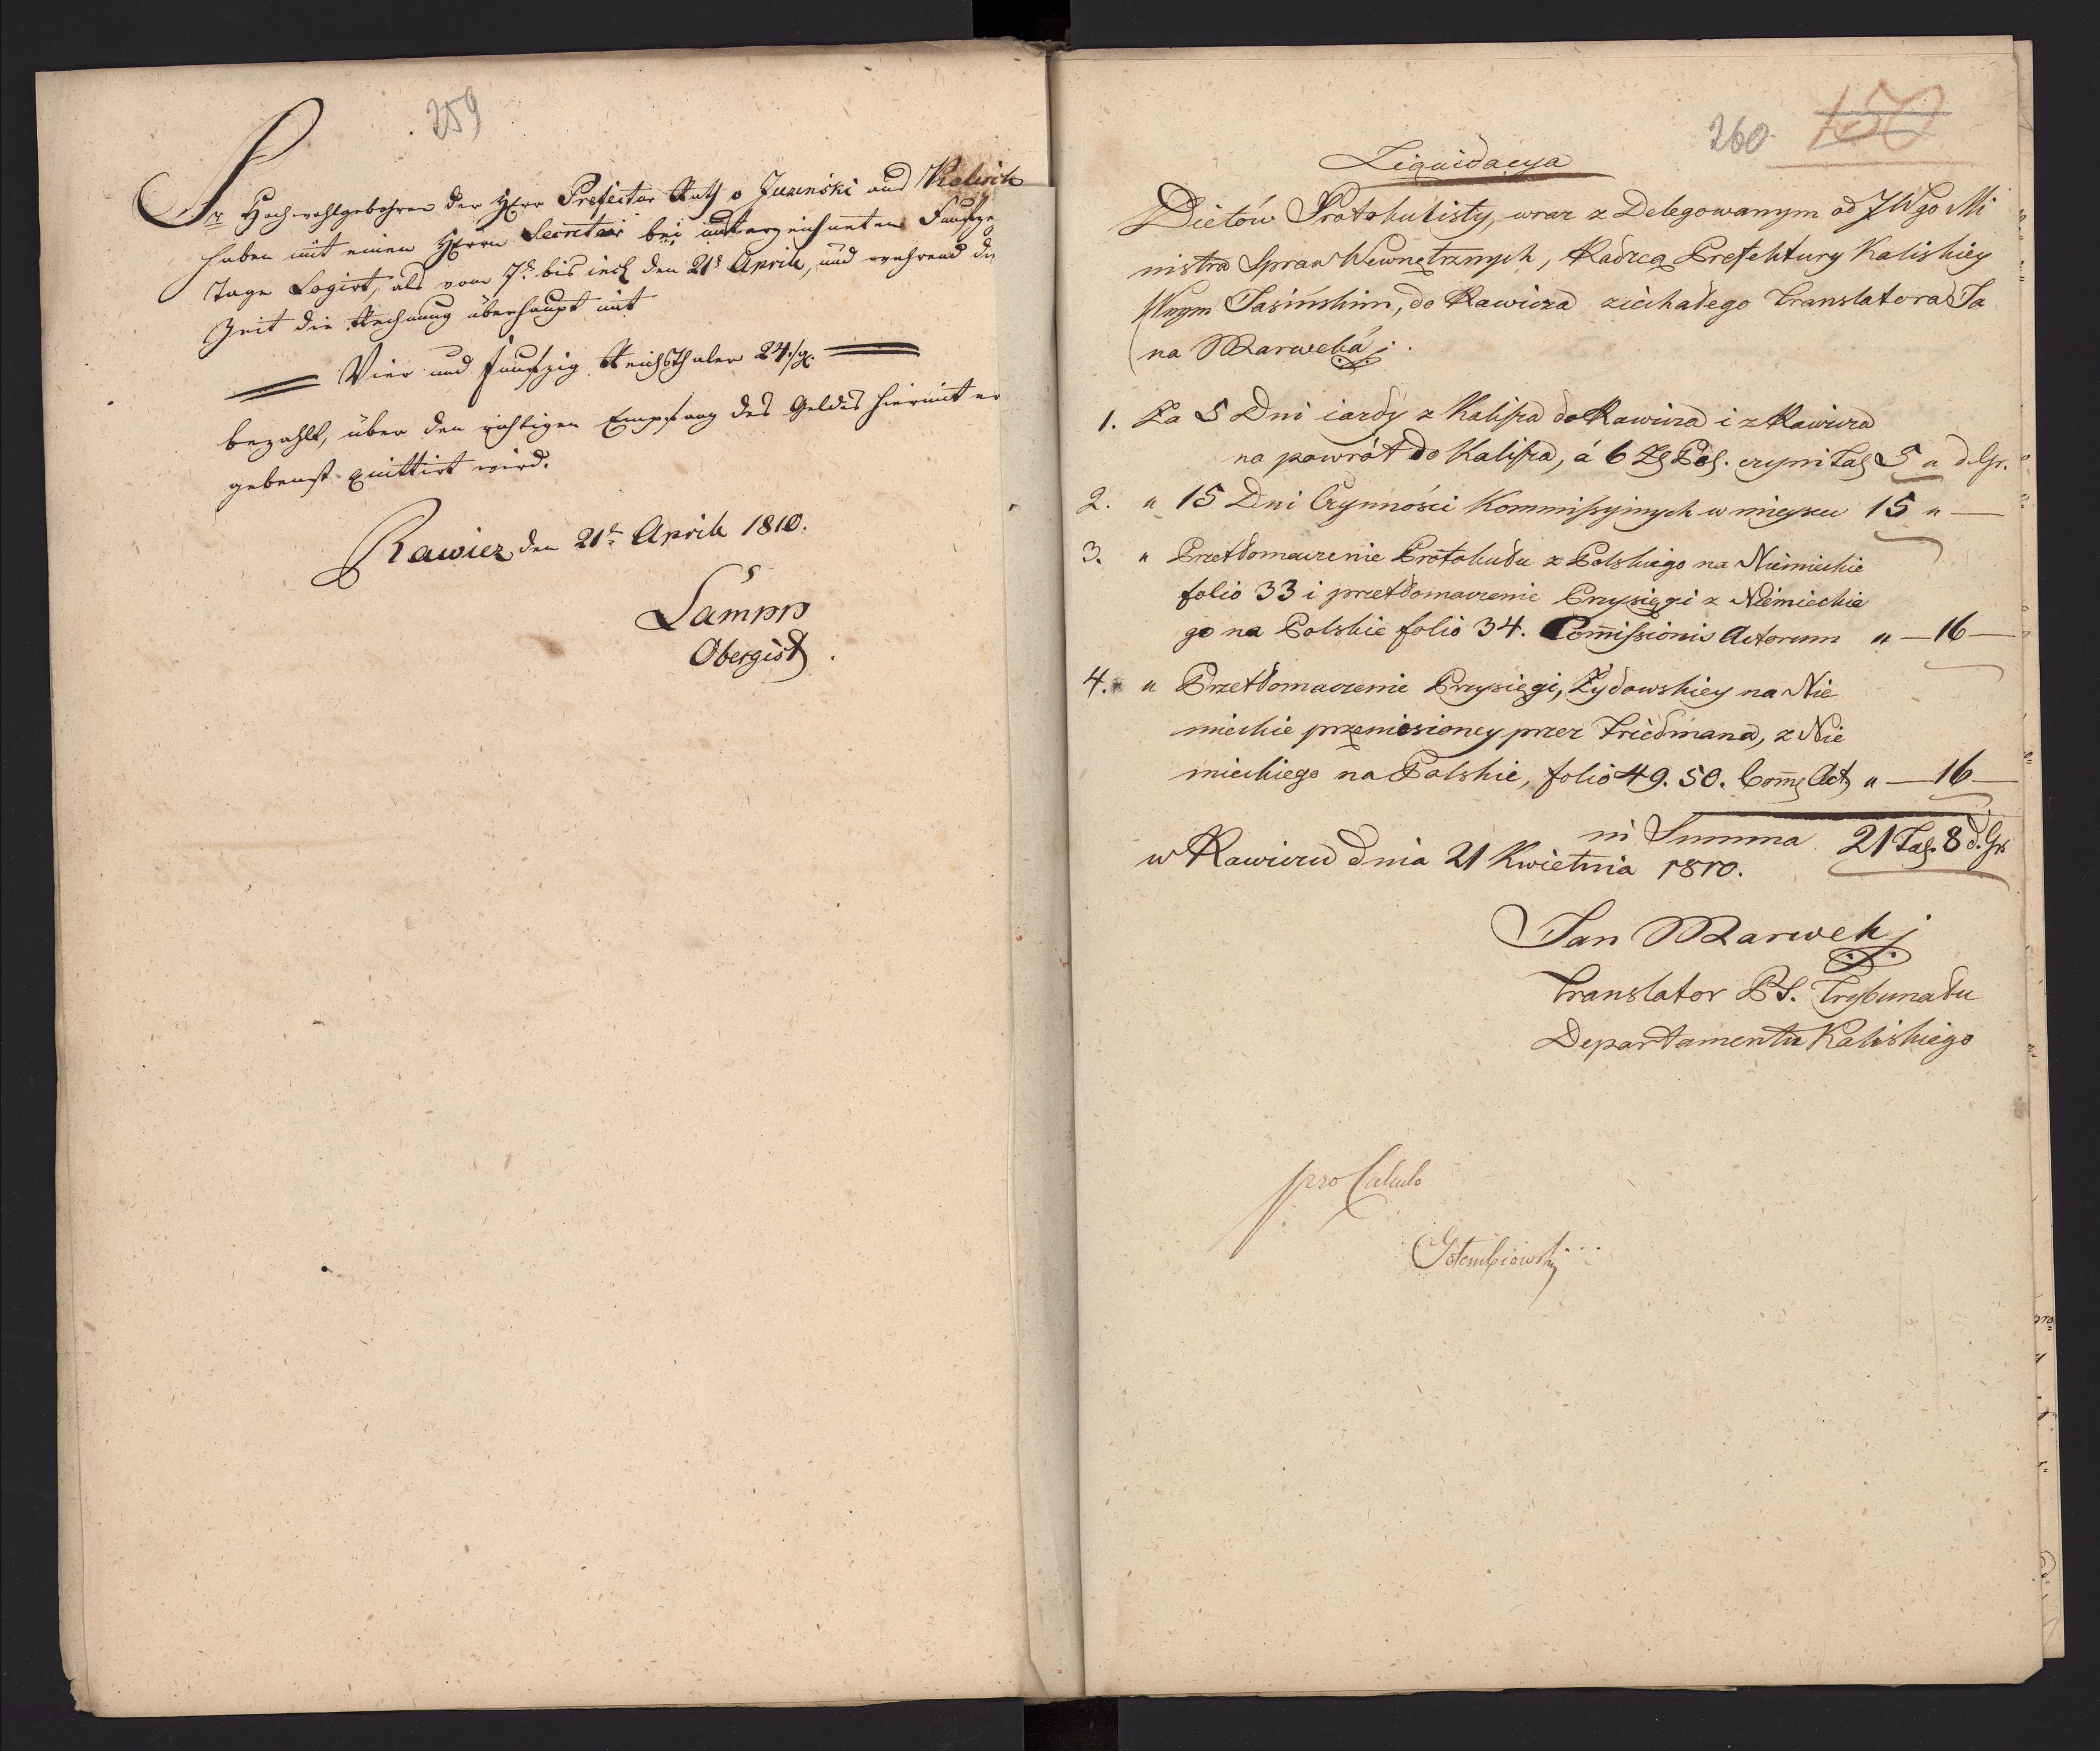 259
Sr Hochwohlgebohren der Herr Prefectur Rath v Juzinski aus Kalisch
haben mit einen Herrn Secretair bei unterzeichneten Funfzehn
Tage Logirt, als vom 7t bis incl den 21t Aprile, und wehrend die
Zeit die Rechnung überhaupt mit
Vier und Funfzig Reichsthaler 24 sg.
bezahlt, über den richtigen Empfang des Geldes hiermit er
gebenst quittirt wird.
Rawicz den 21t Aprile 1810.
Lampp
Obergist.
260 150
Liquidacya
Dietów Protokulisty, wraz z Delegowanym od JWgo Mi
nistra Spraw Wewnętrznych, Radzcą Prefektury Kaliskiey
Wnym Jasińskim, do Rawicza ziechałego Translatora Ja
na MarwekiI.
1. Za 5 Dni iazdy z Kalisza do Rawicza i z Rawicza
na powrót do Kalisza, á 6 Zł Pol. czyni Tal 5 " d. Gr.
2. " 15 Dni Czynności Kommissyinych w mieyscu 15 " —
3. " Przetłomaczenie Protokułu z Polskiego na Niemieckie
folio 33 i przetłomaczenie Przysięgi z Niemieckie
go na Polskie folio 34. Com̄issionis Actorum " — 16 —
4. " Przetłomaczenie Przysięgi, Żydowskiey na Nie
mieckie przeniesioney przez Friedmana, z Nie
mieckiego na Polskie, folio 49. 50. Com̄ Act " — 16 —
in Summa 21 Tal. 8 d. Gr
w Rawiczu dnia 21 Kwietnia 1810.
Jan Marweki
Translator PS. Trybunału
Departamentu Kaliskiego
pro Calculo
Gołembiowski